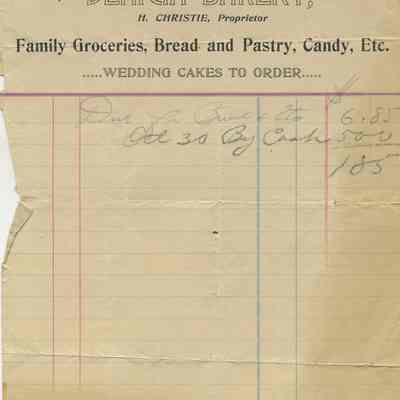 BAKERY,
H. CHRISTIE, Proprietor
Family Groceries, Bread and Pastry, Candy, Etc.
.....WEDDING CAKES TO ORDER.....
$
Due for Bread & Etc 6.85
Oct 30 By Cash 5 00
1 85